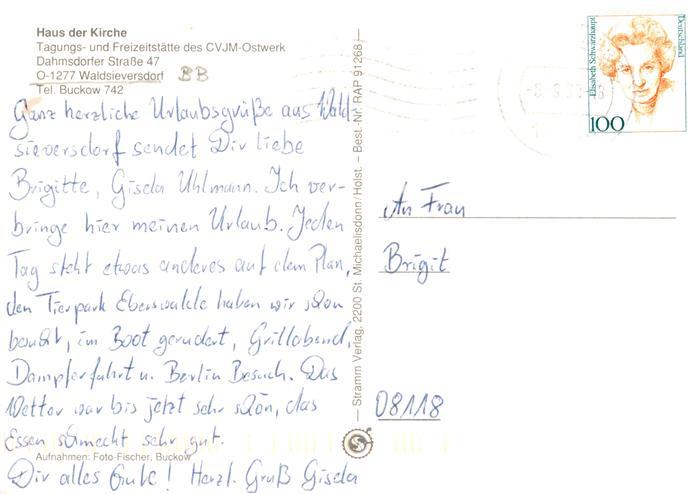 Haus der Kirche
Tagungs- und Freizeitstätte des CVJM-Ostwerk
Dahmsdorfer Straße 47
O-1277 Waldsieversdorf BB
Tel. Buckow 742
Ganz herzliche Urlaubsgrüße aus Wald-
sieversdorf sendet Dir liebe
Brigitte, Gisela Uhlmann. Ich ver-
bringe hier meinen Urlaub. Jeden
Tag steht etwas anderes auf dem Plan,
den Tierpark Eberswalde haben wir schon
besucht, im Boot gerudert, Grillabend,
Dampferfahrt u. Berlin Besuch. Das
Wetter war bis jetzt sehr schön, das
Essen schmeckt sehr gut.
Aufnahmen: Foto-Fischer, Buckow
Dir alles Gute! Herzl. Gruß Gisela
— Stramm Verlag, 2200 St. Michaelisdonn/Holst. — Best.-Nr. RAP 91268 —
Elisabeth Schwarzhaupt
Deutschland
100
An Frau
Brigit
08118